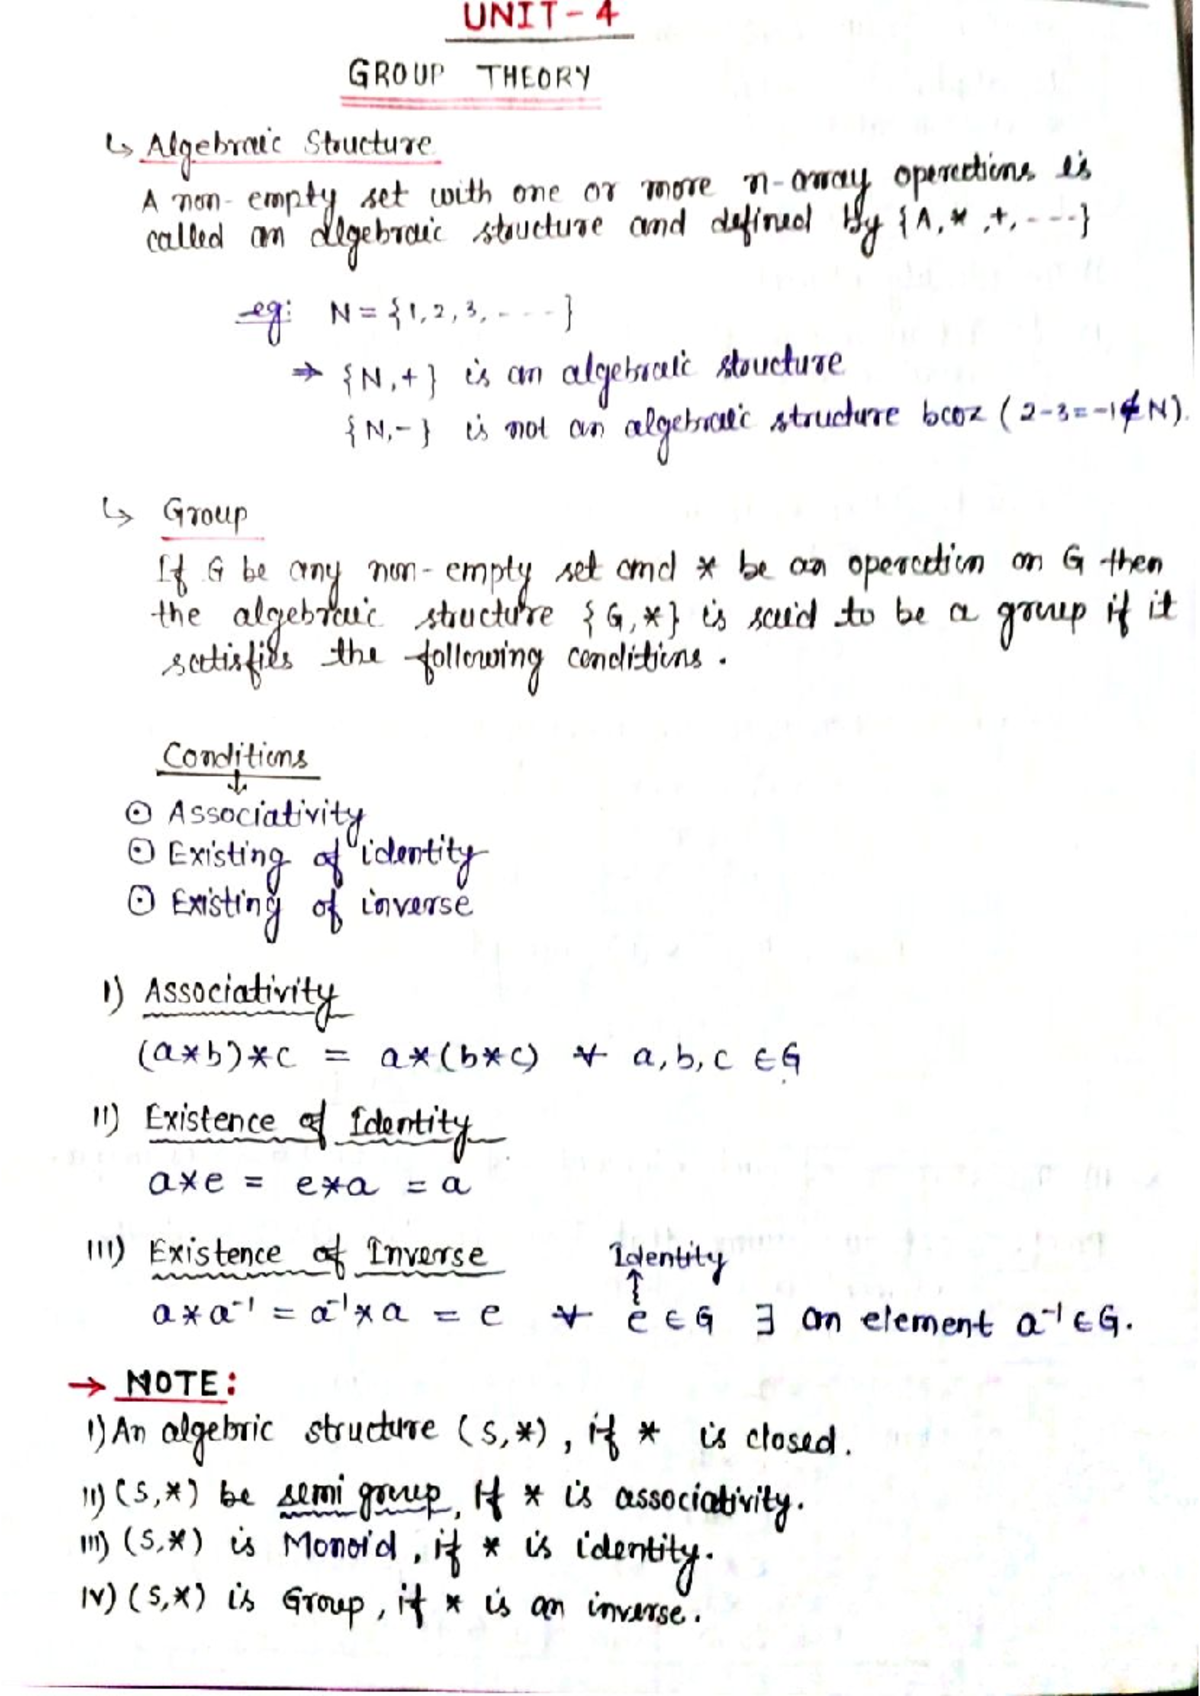 UNIT-4
GROUP THEORY
↳ Algebraic Structure
A non-empty set with one or more n-array operations is
called an algebraic structure and defined by {A, *, +, ---}
eg: N = {1, 2, 3, ----}
⇒ {N, +} is an algebraic structure
{N, -} is not an algebraic structure bcoz (2-3 = -1 ∉ N).
↳ Group
If G be any non-empty set and * be an operation on G then
the algebraic structure {G, *} is said to be a group if it
satisfies the following conditions.
Conditions
↓
⊙ Associativity
⊙ Existing of identity
⊙ Existing of inverse
I) Associativity
(a*b)*c = a*(b*c) ∀ a, b, c ∈ G
II) Existence of Identity
a*e = e*a = a
III) Existence of Inverse
Identity
↑
a*a⁻¹ = a⁻¹*a = e ∀ e ∈ G ∃ an element a⁻¹ ∈ G.
→ NOTE:
I) An algebric structure (S, *), if * is closed.
II) (S, *) be semi group, If * is associativity.
III) (S, *) is Monoid, if * is identity.
IV) (S, *) is Group, if * is an inverse.